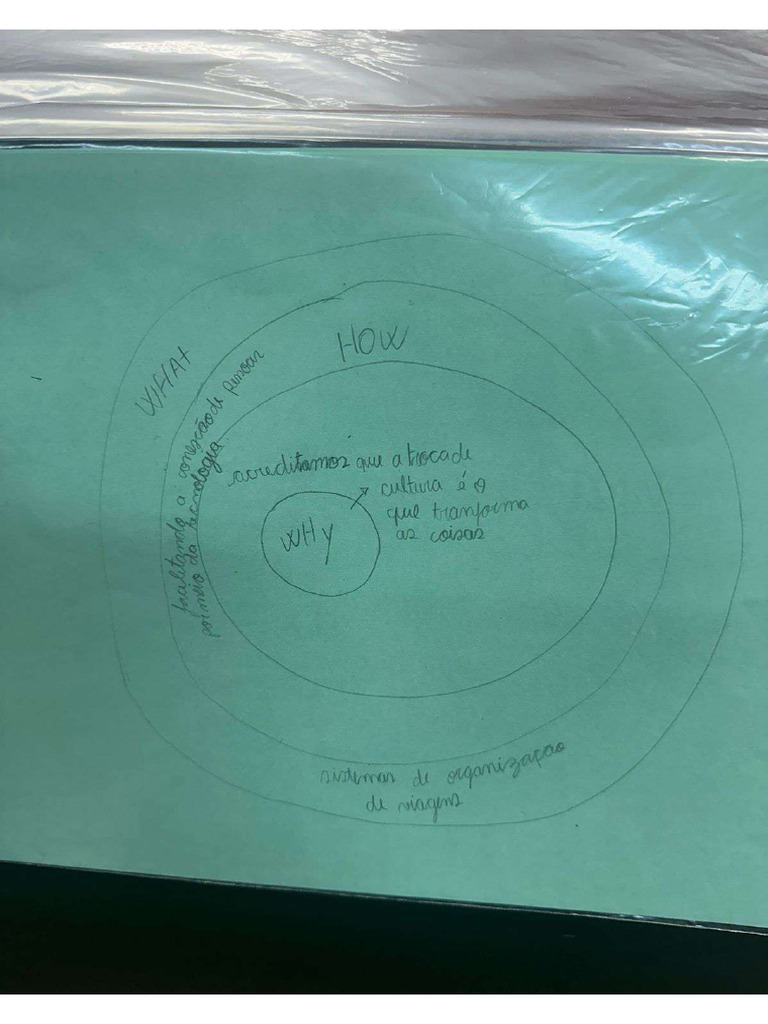 WHAt
HOW
facilitando a conexão de pessoas
por meio da tecnologia
acreditamos que a troca de
cultura é o
que tranforma
as coisas
WHy
sistemas de organização
de viagens